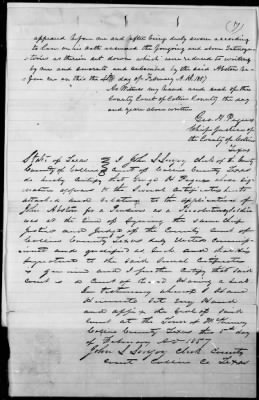 (7)
appeared before me and after being duly sworn according
to law on his oath answered the foregoing and above Interroga-
tories as therein set down which were reduced to writing
by me and sworn to and subscribed by the said Abston be-
fore me on this the 4th day of February A.D. 1857
As Witness my hand and seal of the
County Court of Collin County the day
and year above written
Geo. H. Pegues
Chief Justice of
the County of Collin
Texas
State of Texas I John S Lovejoy Clerk of the County
County of Collin Court of Collin County Texas
do hereby Certify that Geo. H Pegues whose sig-
nature appears to the Jurat Certificate hereto
attached and relating to the application of
John Abston for a
was at the time of signing the same Chief
Justice and Judge of the County Court of
Collin County Texas duly Elected Commissioned
and qualified as such and that his
signature to the said Jurat Certificate
is Genuine and I further Certify that said
Court is a Court of Record Having a Seal
In testimony whereof I Have
Hereunto Set my Hand
and affix the Seal of said
Court at the Town of McKinney
Collin County Texas the 5th day
of February A.D. 1857
John S Lovejoy Clerk County
Court Collin Co Texas